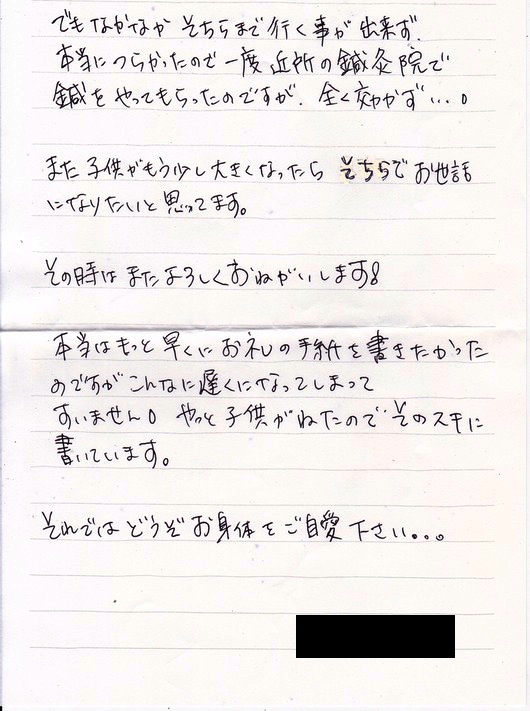 でもなかなか そちらまで行く事が出来ず、
本当につらかったので一度近所の鍼灸院で
鍼をやってもらったのですが、全く効かず…。
また子供がもう少し大きくなったら そちらでお世話
になりたいと思ってます。
その時はまたよろしくおねがいします!
本当はもっと早くにお礼の手紙を書きたかった
のですがこんなに遅くになってしまって
すいません。やっと子供がねたので そのスキに
書いています。
それではどうぞお身体をご自愛下さい。。。